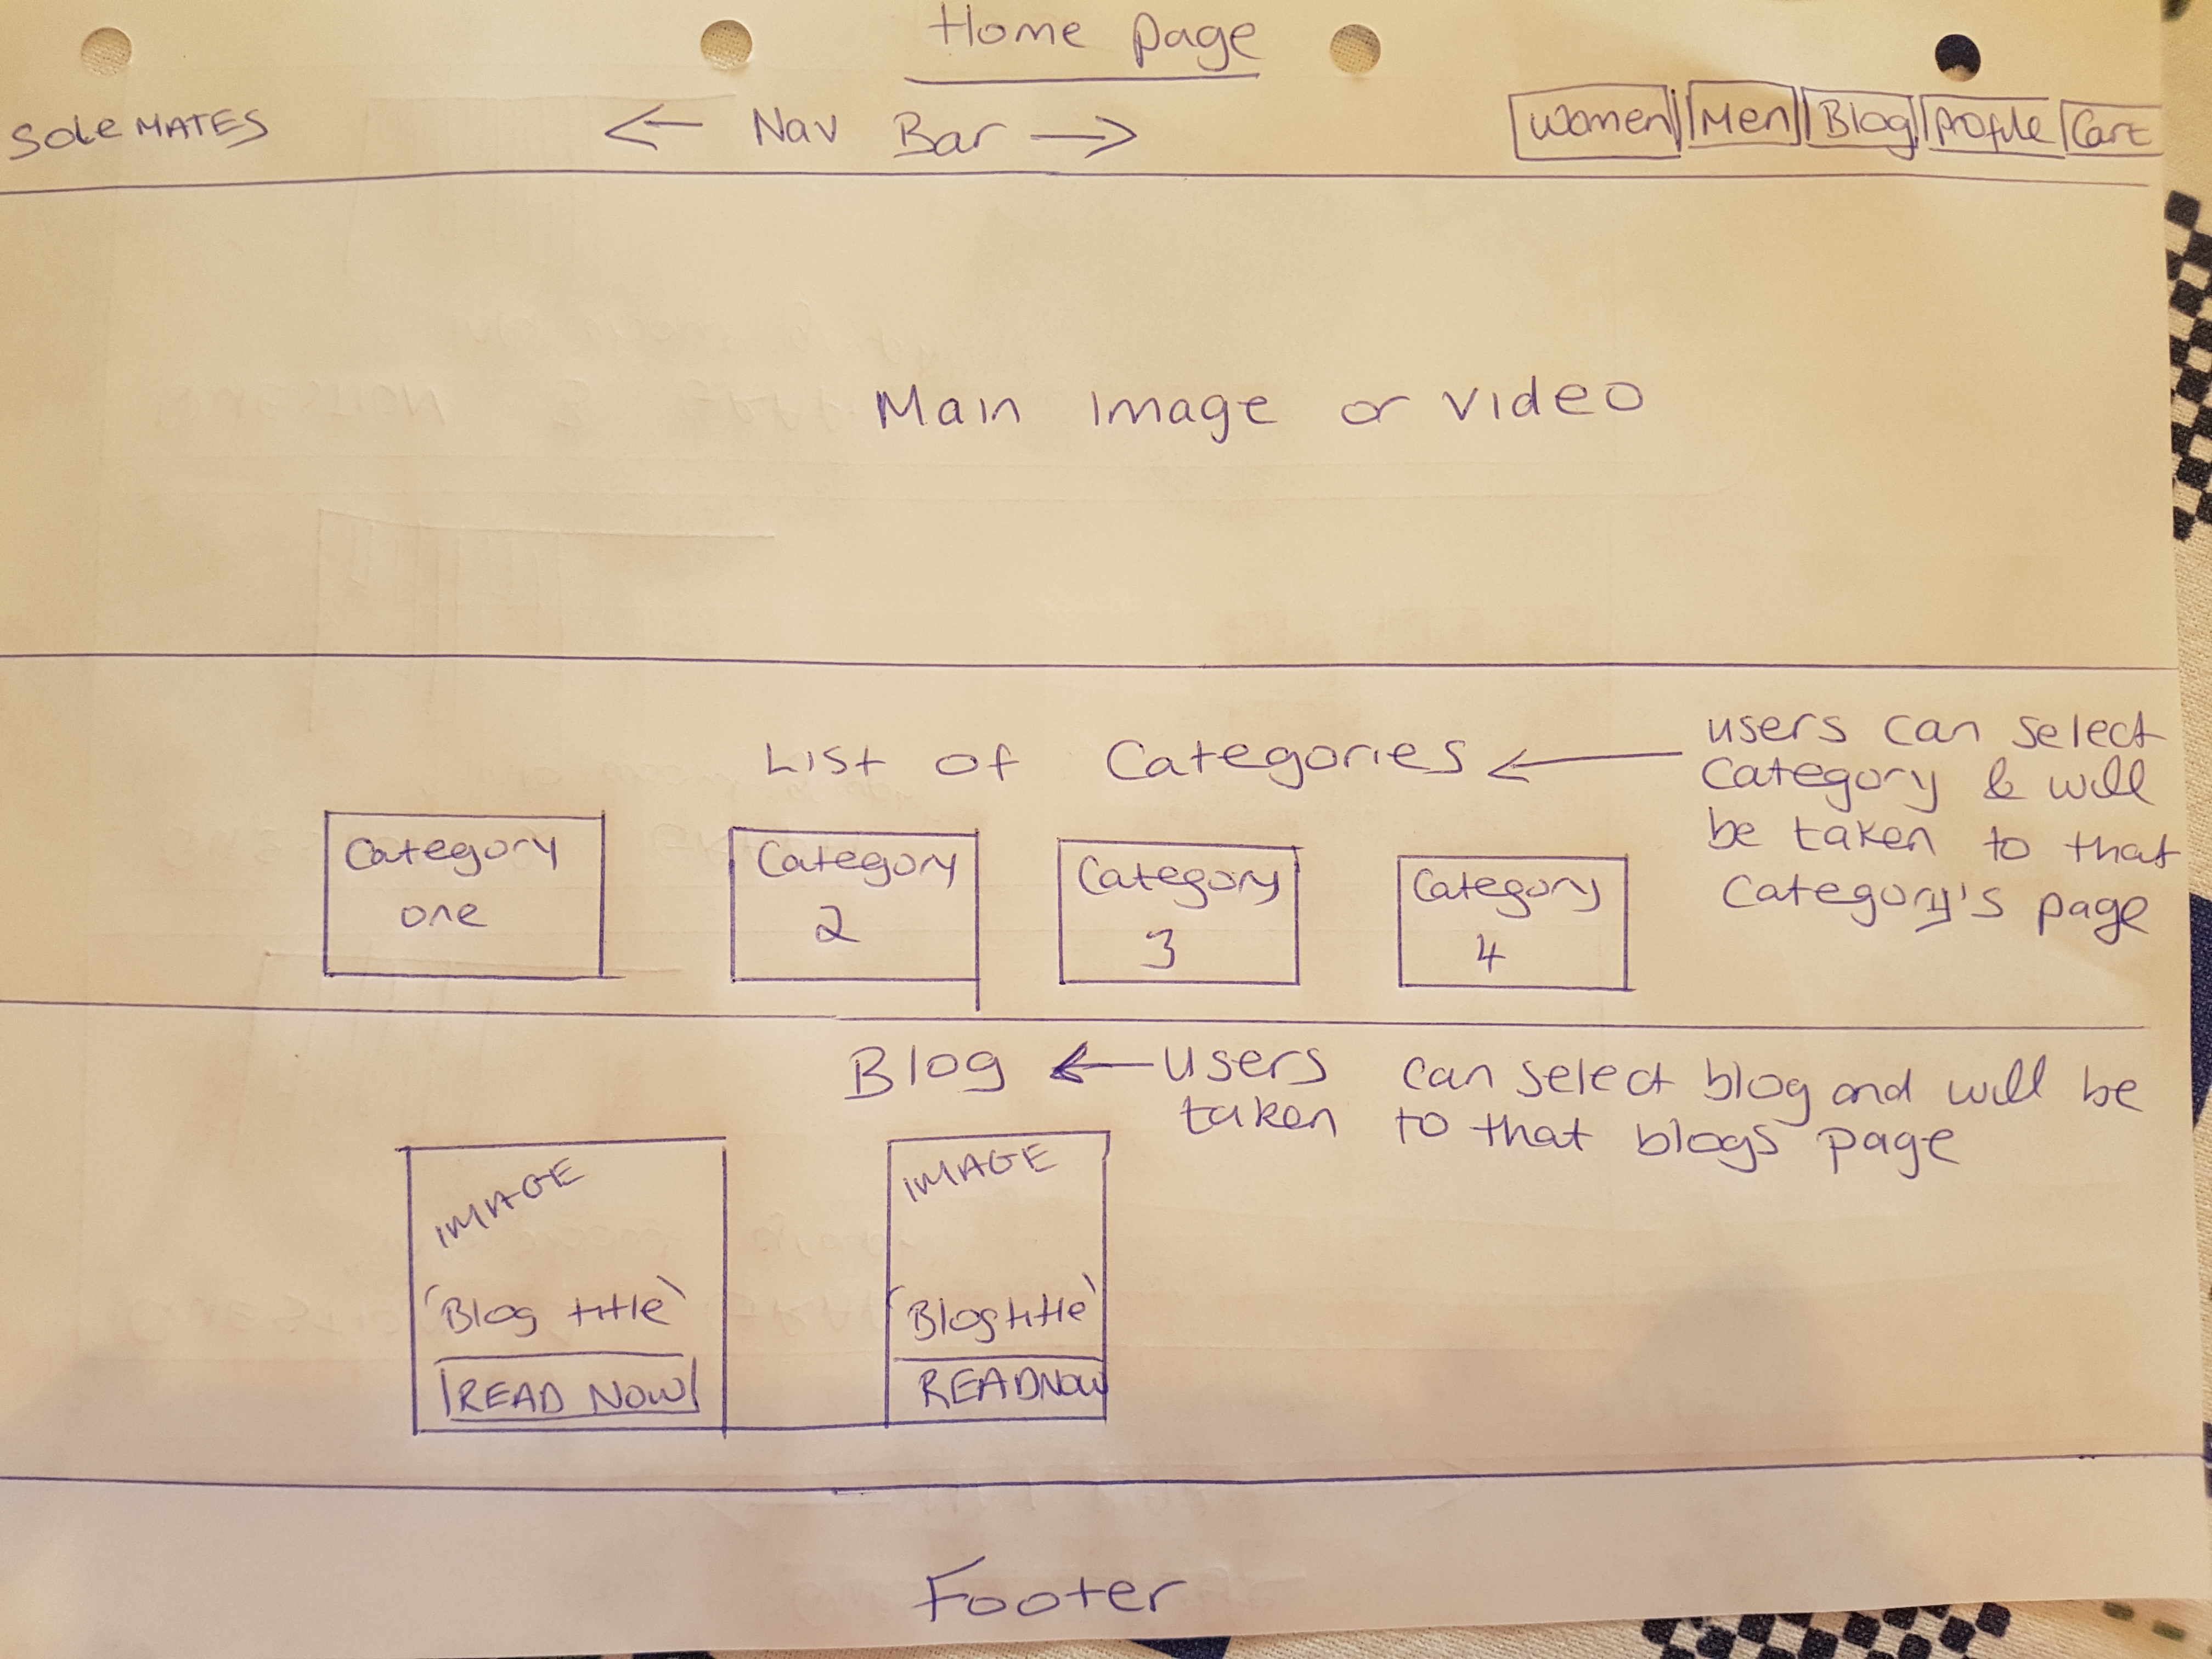 Home page
SoleMATES ← Nav Bar → Women Men Blog Profile Cart
Main image or video
List of Categories ← users can select
Category & will
be taken to that
Category's page
Category
one
Category
2
Category
3
Category
4
Blog ← users can select blog and will be
taken to that blogs page
IMAGE
'Blog title'
READ NOW
IMAGE
'Blog title'
READ NOW
Footer